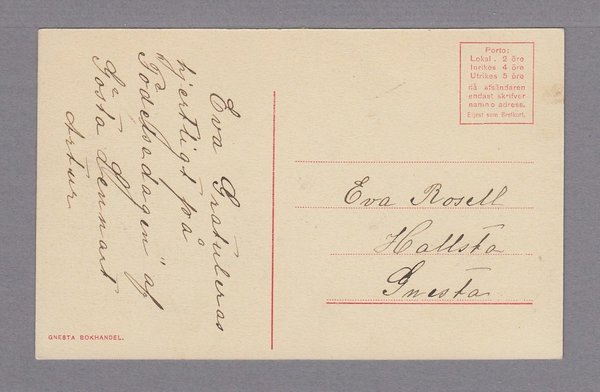 Eva Gratuleras
hjertligt på
Födelsedagen" af
Gösta Lennart
Artur
Porto:
Lokal. 2 öre
Inrikes 4 öre
Utrikes 5 öre
då afsändaren
endast skrifver
namn o adress.
Eljest som Brefkort.
Eva Rosell
Hallsta
Gnesta
GNESTA BOKHANDEL.